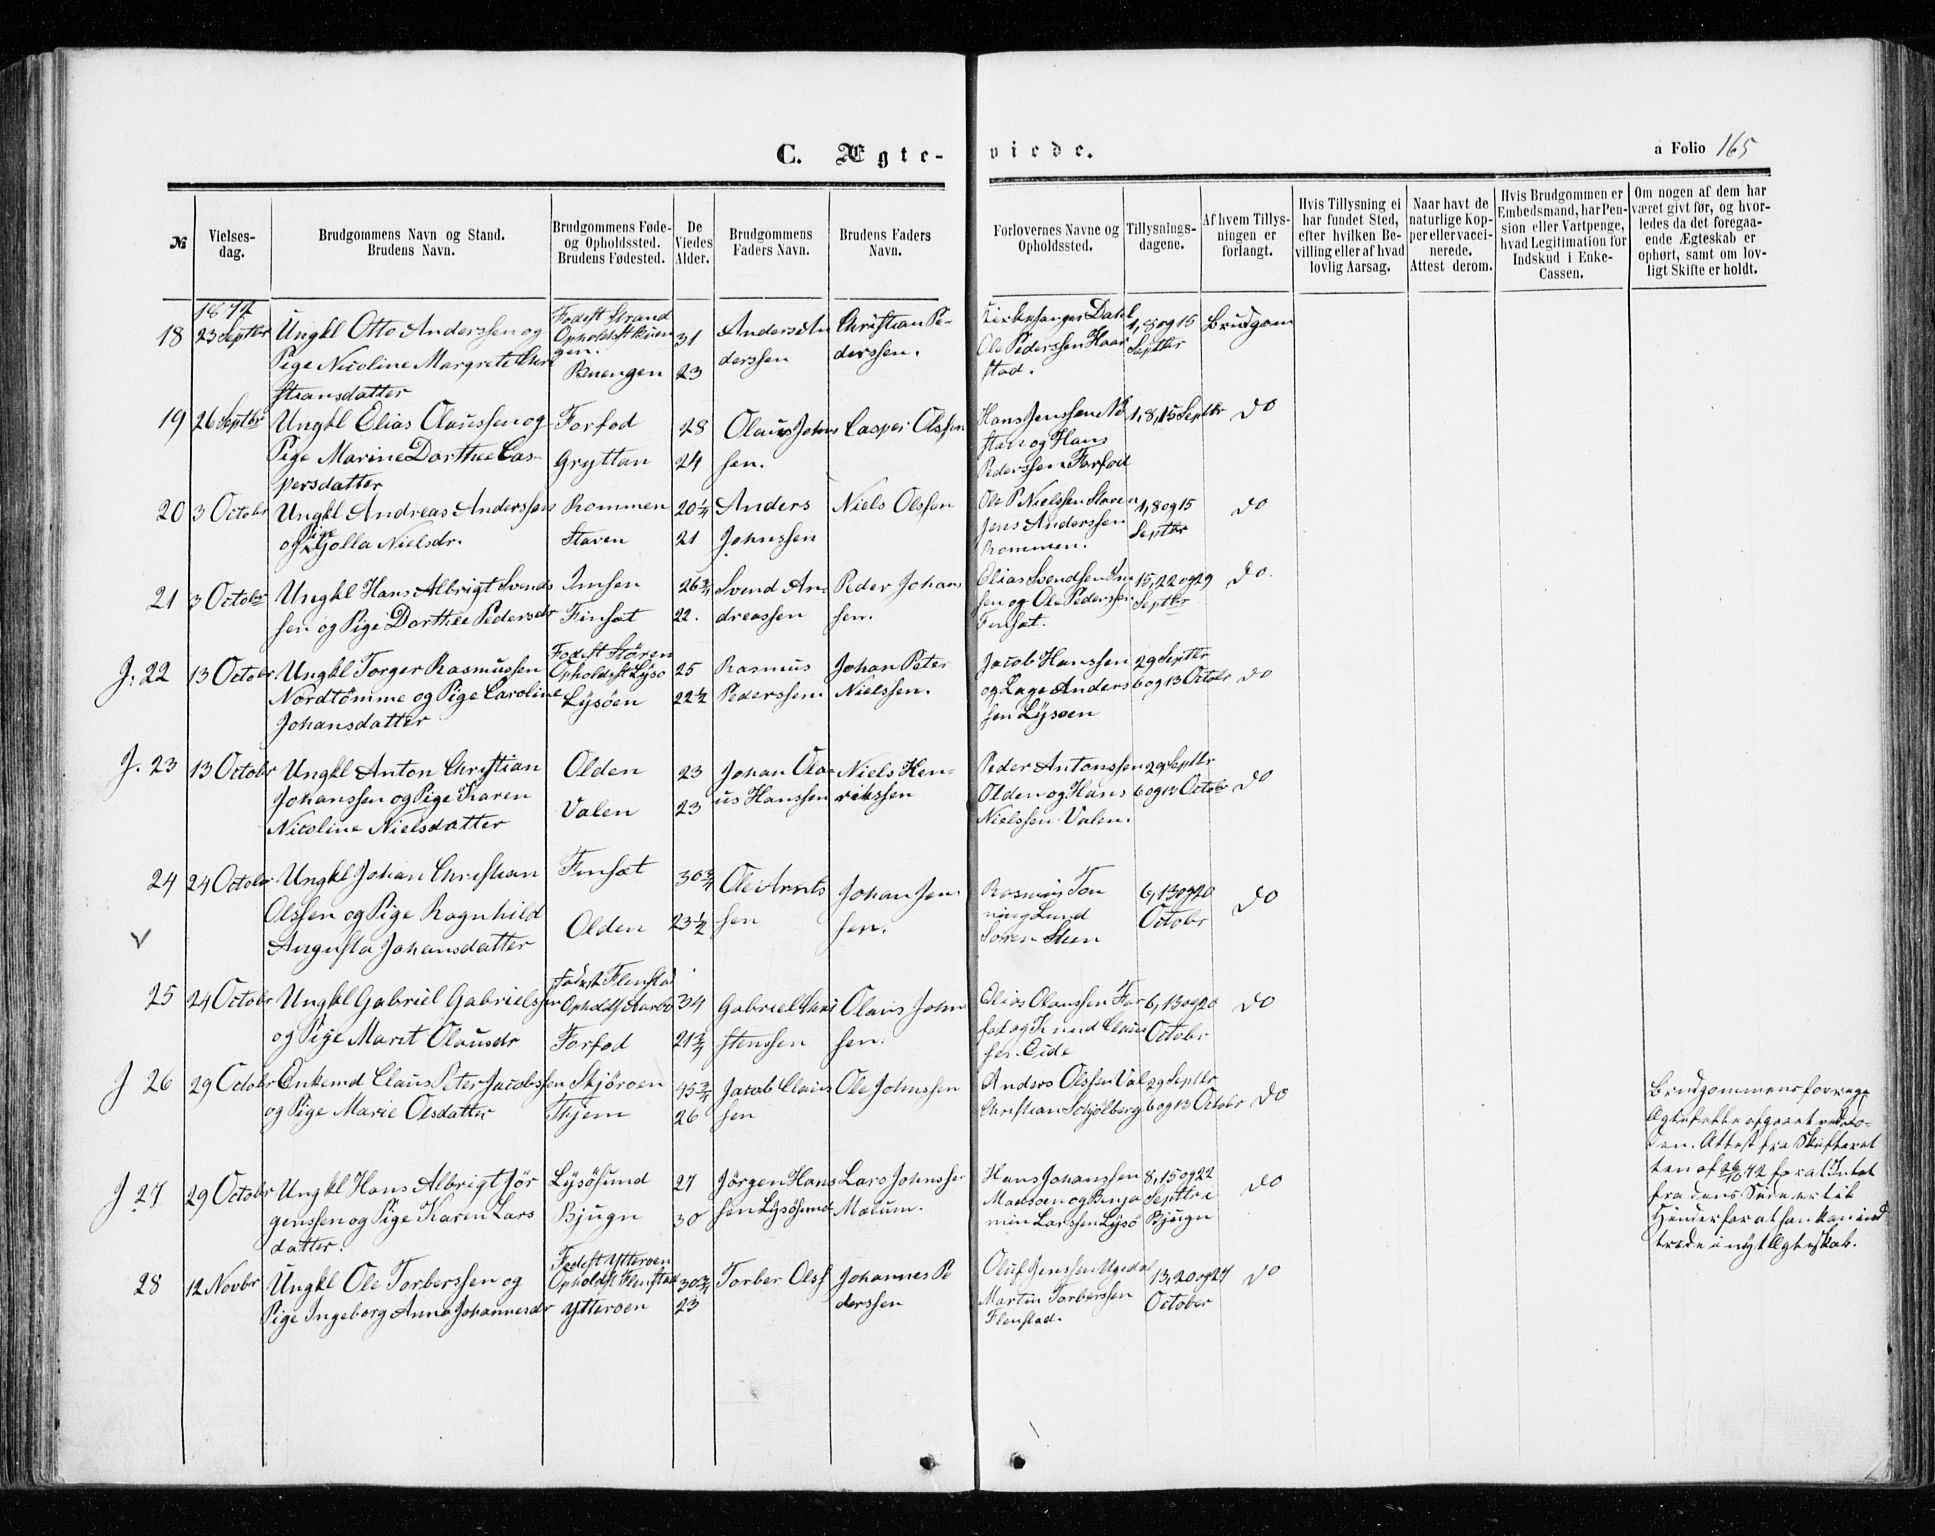 C. Ægte-viede.
a Folio 165
№
Vielses-
dag.
Brudgommens Navn og Stand.
Brudens Navn.
Brudgommens Føde-
og Opholdssted.
Brudens Fødested.
De
Viedes
Alder.
Brudgommens
Faders Navn.
Brudens Faders
Navn.
Forlovernes Navne og
Opholdssted.
Tillysnings-
dagene.
Af hvem Tillys-
ningen er
forlangt.
Hvis Tillysning ei
har fundet Sted,
efter hvilken Be-
villing eller af hvad
lovlig Aarsag.
Naar havt de
naturlige Kop-
per eller vacci-
nerede.
Attest derom.
Hvis Brudgommen er
Embedsmand, har Pen-
sion eller Vartpenge,
hvad Legitimation for
Indskud i Enke-
Cassen.
Om nogen af dem har
været givt før, og hvor-
ledes da det foregaa-
ende Ægteskab er
ophørt, samt om lov-
ligt Skifte er holdt.
18
23 Septbr
Ungkl Otto Anderssen og
Pige Nicoline Margrete Chri
stiansdatter
Fødest Strand
Opholdst Buen
gen.
Buengen
31
23
Anders An
derssen
Christian Pe-
derssen.
Kirkesanger Dahl
Ole Pederssen Haar
stad.
1, 8 og 15
Septbr
Brudgom
19
26 Septbr
Ungkl Elias Olaussen og
Pige Marine Dorthea Cas-
persdatter
Forfod
Gryttan
28
24
Olaus Johns
sen.
Casper Olssen
Hans Jenssen
stan og Hans
Pederssen Forfod
1, 8, 15 Septbr
do
20
3 Octobr
Ungkl Andreas Anderssen
og Pige Golla Nielsdr.
Rommen
Staven
20 1/4
21
Anders
Johnssen
Niels Olssen
Ole P Nielssen Staven
Jens Anderssen
Rommen.
1, 8 og 15
Septbr
do
21
3 Octobr
Ungkl Hans Albrigt Svends
sen og Pige Dorthea Pedersdr
Imsen
Finsæt
26 3/4
22.
Svend An-
dreassen
Peder Johan
sen.
Elias Svendsen Im
sen og Ole Pederssen
Finsæt.
15, 22 og 29
Septbr
do.
J. 22
13 Octobr
Ungkl Torger Rasmussen
Nordtømme og Pige Caroline
Johansdatter
Fødest Støren
Opholdsst Lysø
Lysøen
25
22 1/2
Rasmus
Pederssen
Johan Peter
Nielssen.
Jacob Hanssen
og Lage Anders
sen Lysøen
29 Septbr
6 og 13 Octobr
do
J. 23
13 Octobr
Ungkl Anton Christian
Johanssen og Pige Karen
Nicoline Nielsdatter
Olden
Valen
23
23
Johan Ola-
us Hanssen
Niels Hen-
rikssen
Peder Antonssen
Olden og Hans
Nielssen Valen.
29 Septbr
6 og 13 Octobr
do
24
24 Octobr
Ungkl Johan Christian
Olssen og Pige Ragnhild
Augusta Johansdatter
Finsæt
Olden
30 3/4
23 1/2
Ole Arnts
sen
Johan Jens
sen.
Rasmus Ton
ning Lund
Søren Steen
6, 13 og 20
Octobr
do
25
24 Octobr
Ungkl Gabriel Gabrielssen
og Pige Marit Olausdr
Fødest Flenstad
Opholdst Aarbo
Forfod
34
21 3/4
Gabriel Chri
stenssen
Olaus John
sen.
Elias Olaussen For
fod og Knud Claus
sen Eide
6, 13 og 20
Octobr
do
J 26
29 Octobr
Enkemd Claus Peter Jacobssen
og Pige Marie Olsdatter
Skjøroen
Tkjem
45 3/4
26
Jacob Claus
sen
Ole Johnssen
Anders Olssen Val
Christian Schjølberg
29 Septbr
6 og 13 Octobr
do
Brudgommens forrige
Ægtefælle afgaaet ved Dø-
den. Attest fra Skifteret
ten af 26/10 72 for at Intet
fra dens Side er til
Hinder for at han kan ind
træde i nyt Ægteskab.
J 27
29 Octobr
Ungkl Hans Albrigt Jør
genssen og Pige Karen Lars
datter.
Lysøsund
Bjugn
27
30
Jørgen Hans
sen Lysøsund
Lars Johnssen
Mælum.
Hans Johanssen
Madsøen og Benja
min Larssen Lysø
8, 15 og 22
Septbr i
Bjugn
do
28
12 Novbr
Ungkl Ole Torberssen og
Pige Ingeborg Anna Johannesdr
Fødest Ytterøen
Opholdst Flenstad
Ytterøen
30 3/4
23
Torber Olss
Johannes Pe
derssen
Oluf Jenssen Ugedal
Martin Torberssen
Flenstad.
13, 20 og 27
October
do